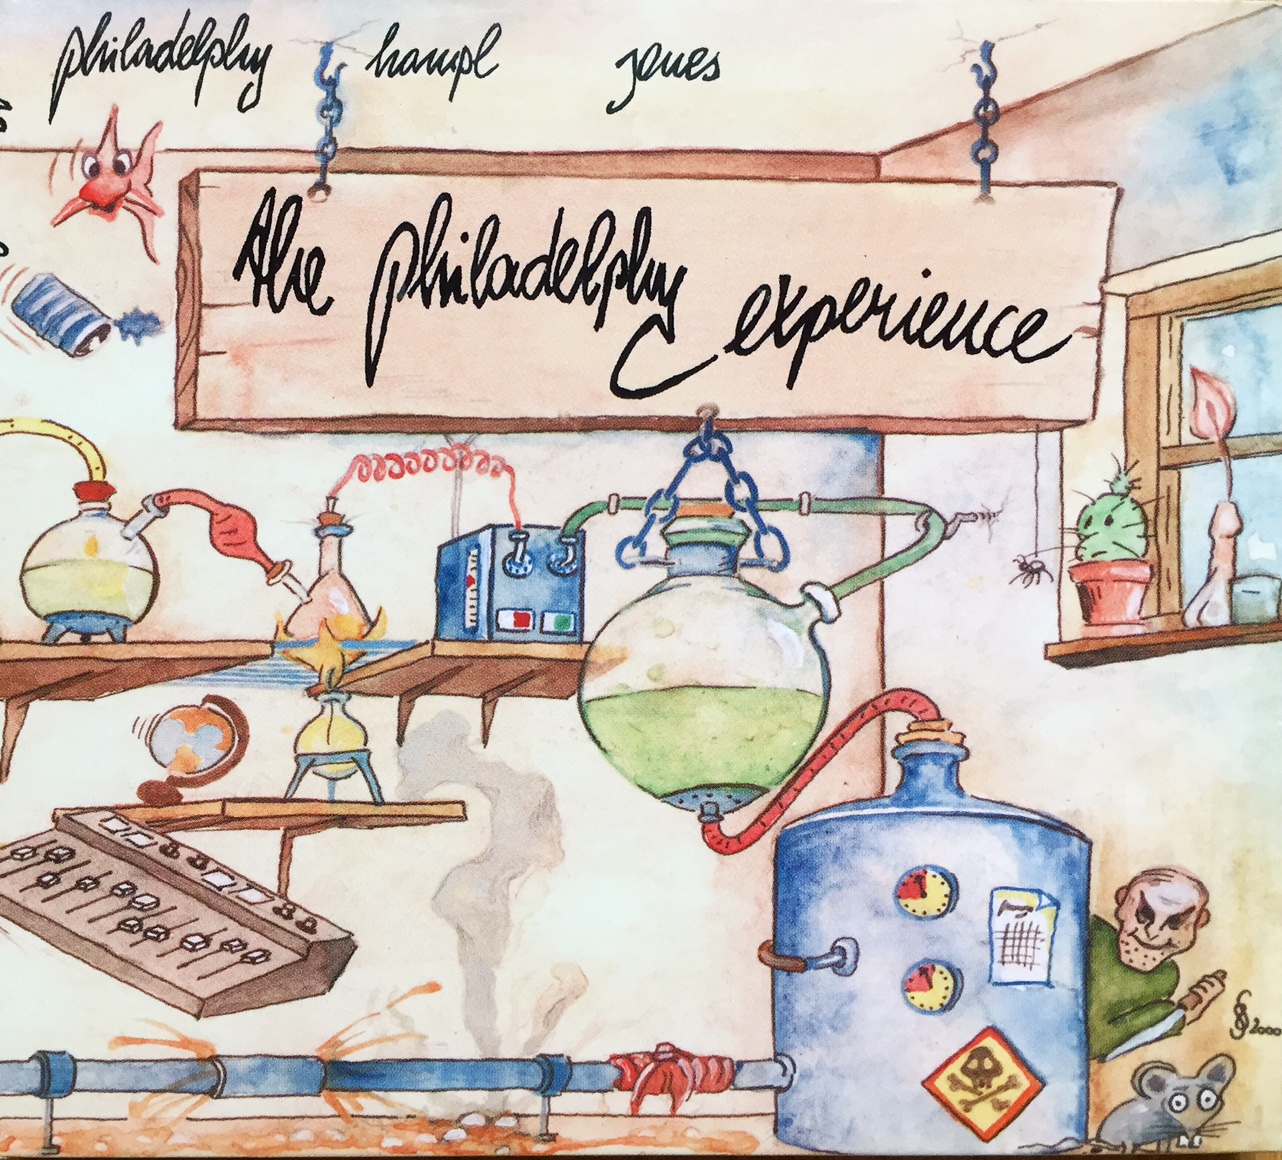 philadelphy hampl jenes
the philadelphy experience
2000